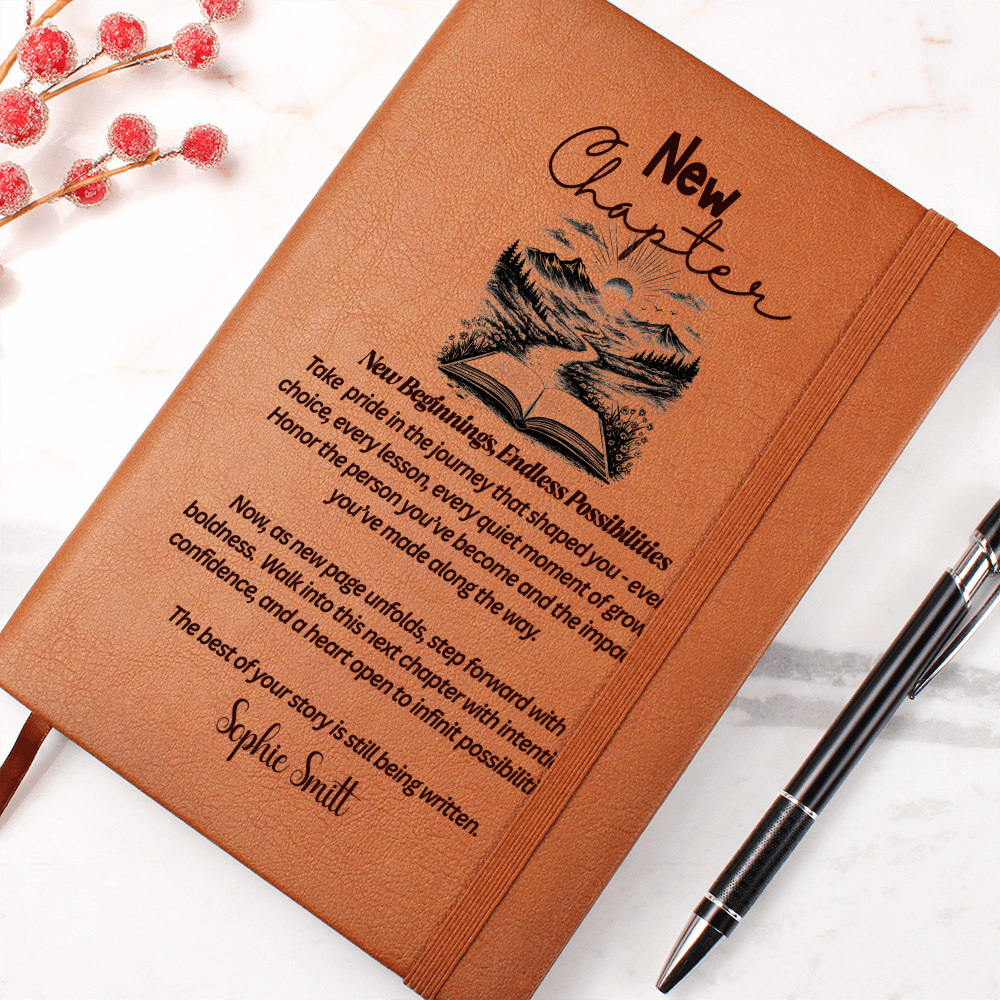 New
Chapter
New Beginnings, Endless Possibilities
Take pride in the journey that shaped you - ever
choice, every lesson, every quiet moment of grow
Honor the person you've become and the impac
you've made along the way.
Now, as new page unfolds, step forward with
boldness. Walk into this next chapter with intenti
confidence, and a heart open to infinit possibiliti
The best of your story is still being written.
Sophie Smitt